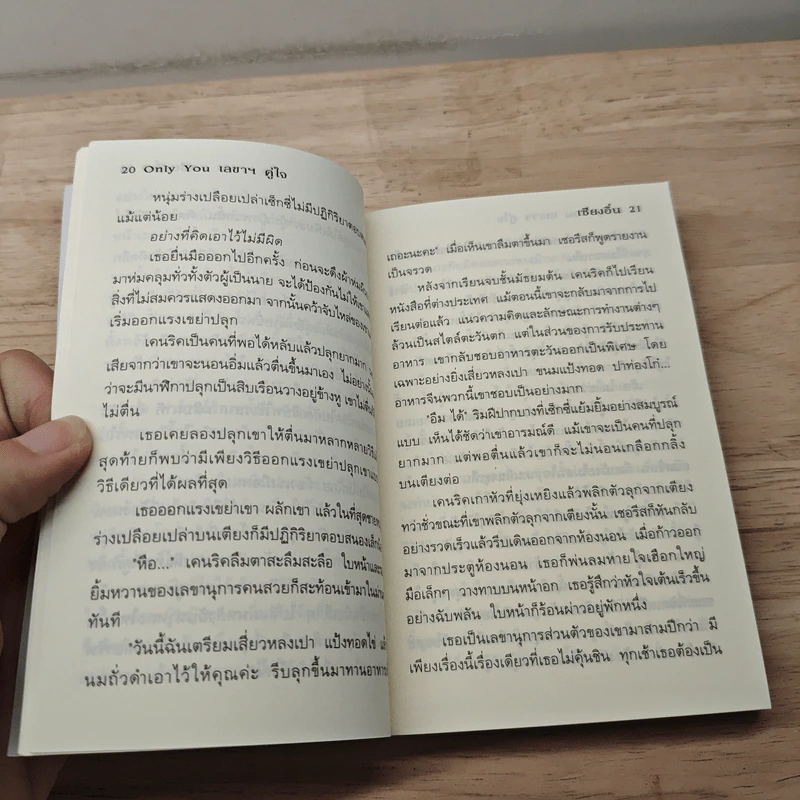 20 Only You เลขาฯ คู่ใจ
หนุ่มร่างเปลือยเปล่าเซ็กซี่ไม่มีปฏิกิริยาตอบ
แม้แต่น้อย
อย่างที่คิดเอาไว้ไม่มีผิด
เธอยื่นมือออกไปอีกครั้ง ก่อนจะดึงผ้าห่ม
มาห่มคลุมทั่วทั้งตัวผู้เป็นนาย จะได้ป้องกันไม่ให้
สิ่งที่ไม่สมควรแสดงออกมา จากนั้นคว้าจับไหล่ของ
เริ่มออกแรงเขย่าปลุก
เคนริคเป็นคนที่พอได้หลับแล้วปลุกยากมาก
เสียจากว่าเขาจะนอนอิ่มแล้วตื่นขึ้นมาเอง ไม่อย่างนั้น
ว่าจะมีนาฬิกาปลุกเป็นสิบเรือนวางอยู่ข้างหู เขาไม่
ไม่ตื่น
เธอเคยลองปลุกเขาให้ตื่นมาหลากหลาย
สุดท้ายก็พบว่ามีเพียงวิธีออกแรงเขย่าปลุก
วิธีเดียวที่ได้ผลที่สุด
เธอออกแรงเขย่าเขา ผลักเขา แล้วในที่สุด
ร่างเปลือยเปล่าบนเตียงก็มีปฏิกิริยาตอบสนอง
"หือ..." เคนริคลืมตาสะลึมสะลือ ใบหน้าและ
ยิ้มหวานของเลขานุการคนสวยก็สะท้อนเข้ามาใน
ทันที
"วันนี้ฉันเตรียมเสี่ยวหลงเปา แป้งทอดไข่
นมถั่วดำเอาไว้ให้คุณค่ะ รีบลุกขึ้นมาทานอาหาร
เซียงอิ๋น 21
เถอะนะคะ" เมื่อเห็นเขาลืมตาขึ้นมา เชอรีสก็พูดรายงาน
เป็นจรวด
หลังจากเรียนจบชั้นมัธยมต้น เคนริคก็ไปเรียน
หนังสือที่ต่างประเทศ แม้ตอนนี้เขาจะกลับมาจากการไป
เรียนต่อแล้ว แนวความคิดและลักษณะการทำงานต่างๆ
ล้วนเป็นสไตล์ตะวันตก แต่ในส่วนของการรับประทาน
อาหาร เขากลับชอบอาหารตะวันออกเป็นพิเศษ โดย
เฉพาะอย่างยิ่งเสี่ยวหลงเปา ขนมแป้งทอด ปาท่องโก๋...
อาหารจีนพวกนี้เขาชอบเป็นอย่างมาก
"อืม ได้" ริมฝีปากบางที่เซ็กซี่แย้มยิ้มอย่างสมบูรณ์
แบบ เห็นได้ชัดว่าเขาอารมณ์ดี แม้เขาจะเป็นคนที่ปลุก
ยากมาก แต่พอตื่นแล้วเขาก็จะไม่นอนเกลือกกลิ้ง
บนเตียงต่อ
เคนริคเกาหัวที่ยุ่งเหยิงแล้วพลิกตัวลุกจากเตียง
ทว่าชั่วขณะที่เขาพลิกตัวลุกจากเตียงนั้น เชอรีสก็หันกลับ
อย่างรวดเร็วแล้วรีบเดินออกจากห้องนอน เมื่อก้าวออก
มาจากประตูห้องนอน เธอก็พ่นลมหายใจเฮือกใหญ่
มือเล็กๆ วางทาบบนหน้าอก เธอรู้สึกว่าหัวใจเต้นเร็วขึ้น
อย่างฉับพลัน ใบหน้าก็ร้อนผ่าวอยู่พักหนึ่ง
เธอเป็นเลขานุการส่วนตัวของเขามาสามปีกว่า มี
เพียงเรื่องนี้เรื่องเดียวที่เธอไม่คุ้นชิน ทุกเช้าเธอต้องเป็น